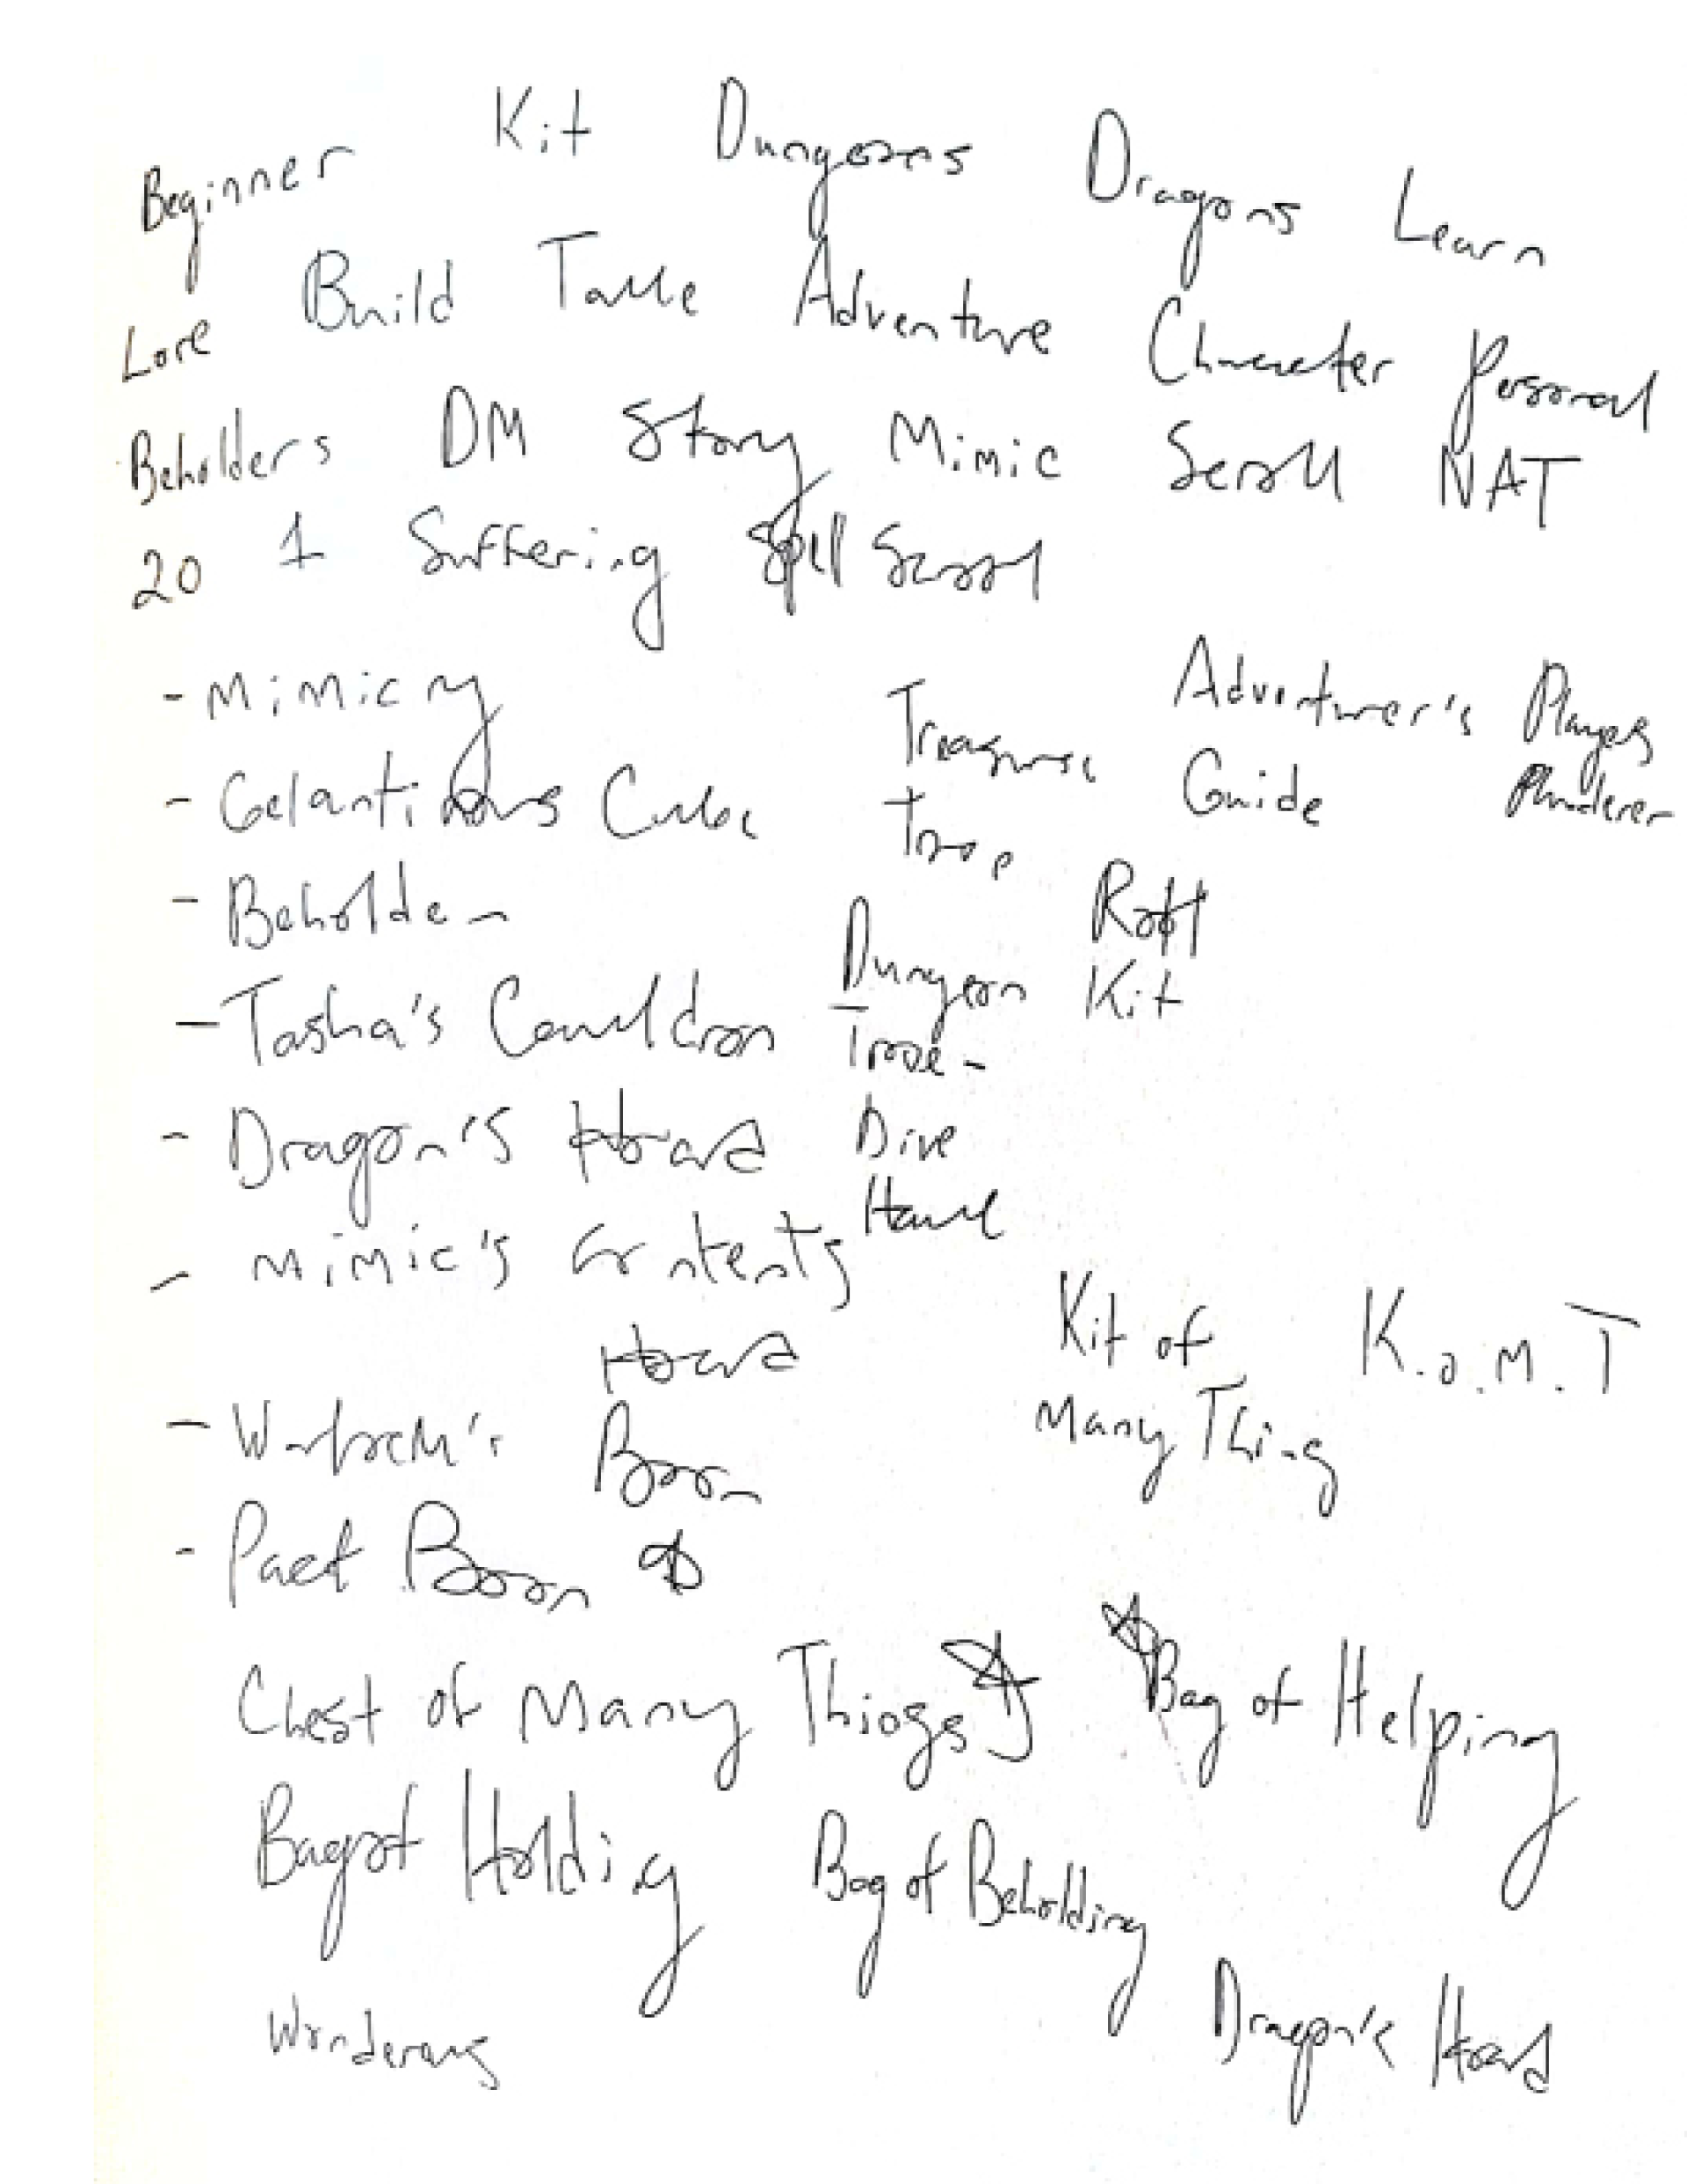 Beginner Kit Dungeons Dragons Learn
Lore Build Table Adventure Character Personal
Beholders DM Story Mimic Scroll NAT
20 1 Suffering Spell Scroll
- Mimicry
- Gelantinous Cube
- Beholder
- Tasha's Cauldron
- Dragon's Hoard
- Mimic's Contents
Hoard
- Warlock's Boon
- Pact Boon
Treasure
Trove
Dungeon
Trove -
Dive
Haul
Adventurer's
Guide
Players
Plunderer
Roll
Kit
Kit of
Many Thing
K.o.M.T
Chest of Many Things
Bag of Helping
Bag of Holding
Bag of Beholding
Wonderous
Dragon's Hoard